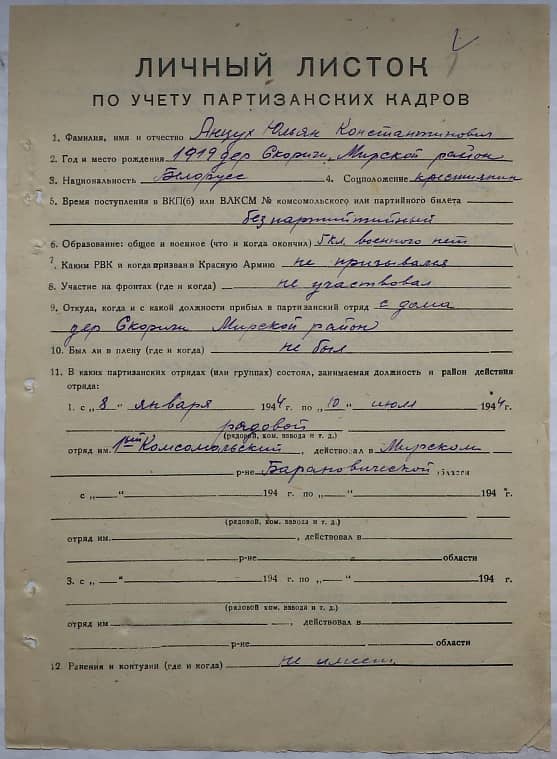 ЛИЧНЫЙ ЛИСТОК
ПО УЧЕТУ ПАРТИЗАНСКИХ КАДРОВ
1. Фамилия, имя и отчество Янцух Юльян Константинович
2. Год и место рождения 1919 дер Скориги, Мирской район
3. Национальность Белорусс 4. Соцположение крестьянин
5. Время поступления в ВКП(б) или ВЛКСМ № комсомольского или партийного билета
безпартийтийный
6. Образование: общее и военное (что и когда окончил) 5 кл. военного нет
7. Каким РВК и когда призван в Красную Армию не призывался
8. Участие на фронтах (где и когда) не участвовал
9. Откуда, когда и с какой должности прибыл в партизанский отряд с дома
дер Скориги Мирской район
10. Был ли в плену (где и когда) не был
11. В каких партизанских отрядах (или группах) состоял, занимаемая должность и район действия
отряда:
1. с „8" января 1944 г. по „10" июля 1944 г.
рядовой
(рядовой, ком. взвода и т. д.)
отряд им. 1ый Комсомольский, действовал в Мирском
р-не Барановической области
с „ — " 194 г. по „ — " 194 г.
(рядовой, ком. взвода и т. д.)
отряд им. , действовал в
р-не области
3. с „ — " 194 г. по „ — " 194 г.
(рядовой ком. взвода и т. д.)
отряд им , действовал в
р-не области
12. Ранения и контузии (где и когда) не имеет